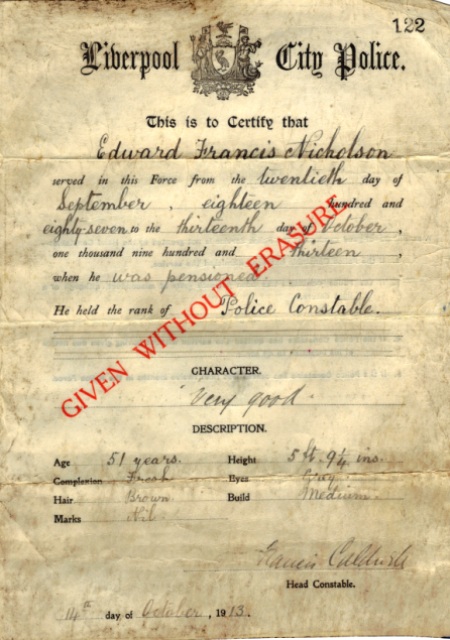 122
Liverpool City Police.
This is to Certify that
Edward Francis Nicholson
served in this Force from the twentieth day of
September, eighteen hundred and
eighty-seven to the thirteenth day of October,
one thousand nine hundred and thirteen,
when he was pensioned.
He held the rank of Police Constable.
GIVEN WITHOUT ERASURE
CHARACTER.
Very good.
DESCRIPTION.
Age 51 years. Height 5 ft. 9¼ ins.
Complexion Fresh Eyes Grey.
Hair Brown Build Medium.
Marks Nil.
Francis Caldwell
Head Constable.
14th day of October, 1913.